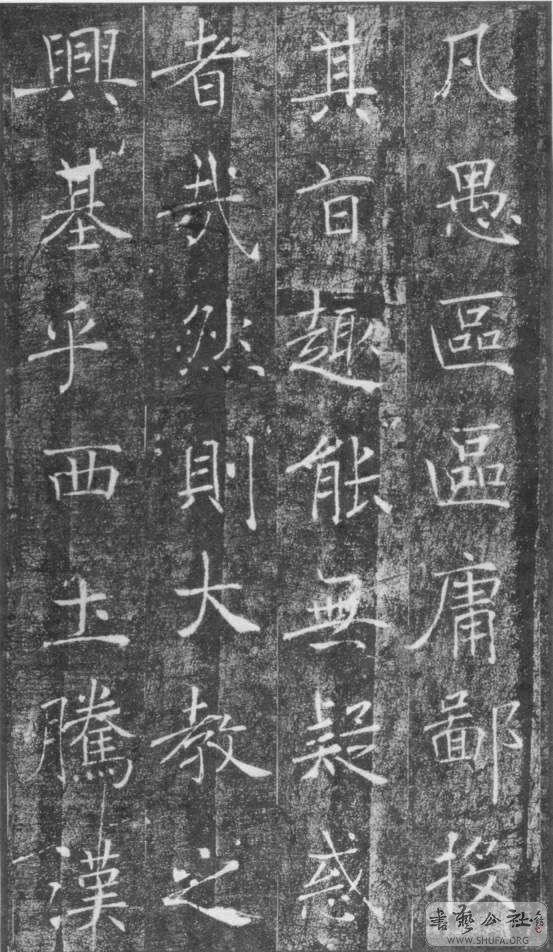 凡愚區區庸鄙投
其旨趣能無疑惑
者哉然則大教之
興基乎西土騰漢
書藝公社
WWW.SHUFA.ORG